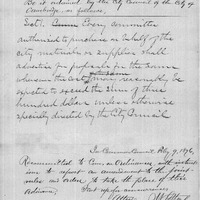 Be it ordained by the City Council of the City of
Cambridge as follows,
Sect. 1. Every committee
authorized to purchase on behalf of the
city materials or supplies shall
advertise for proposals for the same
whenever the cost may reasonably be
expected to exceed the sum of three
hundred dollars unless otherwise
specially directed by the City Council
In Common Council, Feby 9, 1876,
Recommitted to Com. on Ordinances with instruc
tions to report an amendment to the joint
rules and orders to take the place of this
Ordinance. Sent up for concurrence.
Attest